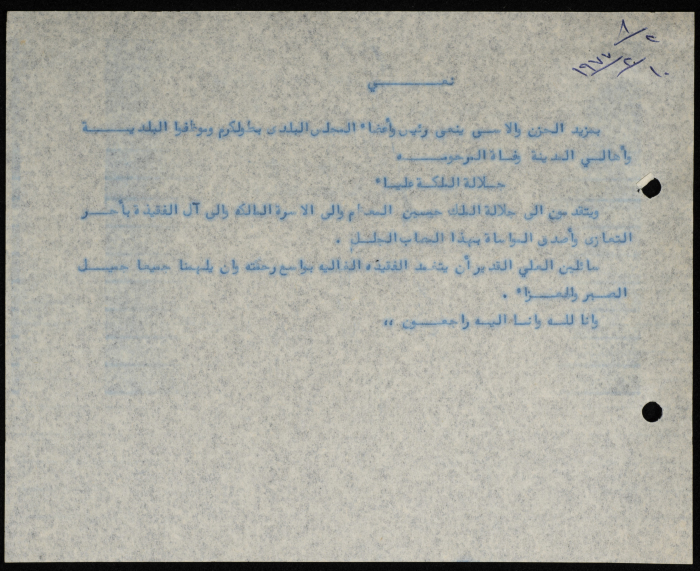 ٨/٢
١٩٧٧/٢/١٠
نعـــــــي
بمزيد الحزن والاسى ينعى رئيس وأعضاء المجلس البلدي بطولكرم وموظفوا البلديـــة
وأهالـي المدينة وفاة المرحومـــه
جلالة الملكة علياء
ويتقدمون الى جلالة الملك حسين المعظم والى الاسرة المالكه والى آل الفقيدة بأحـــر
التعازي وأصدق المواساة بهذا المصاب الجلـل .
سائلين العلي القدير أن يتغمد الفقيده الغاليه بواسع رحمته وان يلهمنا جميعا جميــل
الصبر والعــزاء .
وانا للـه وانـا اليـه راجعــون ،،